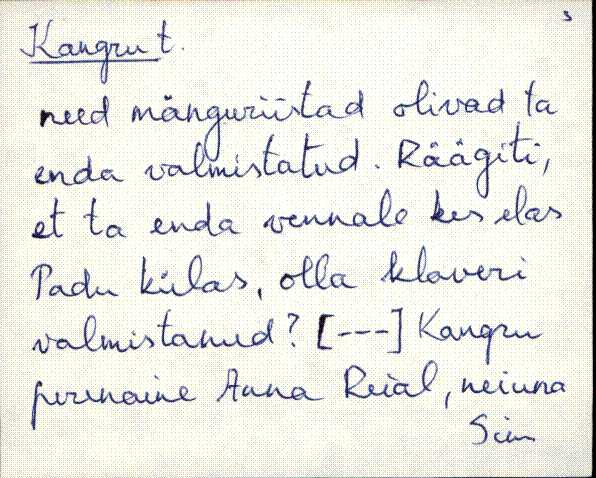 3
Kangru t.
need mänguriistad olivad ta
enda valmistatud. Räägiti,
et ta enda vennale kes elas
Padu külas, olla klaveri
valmistanud? [---] Kangru
perenaine Anna Reial, neiuna